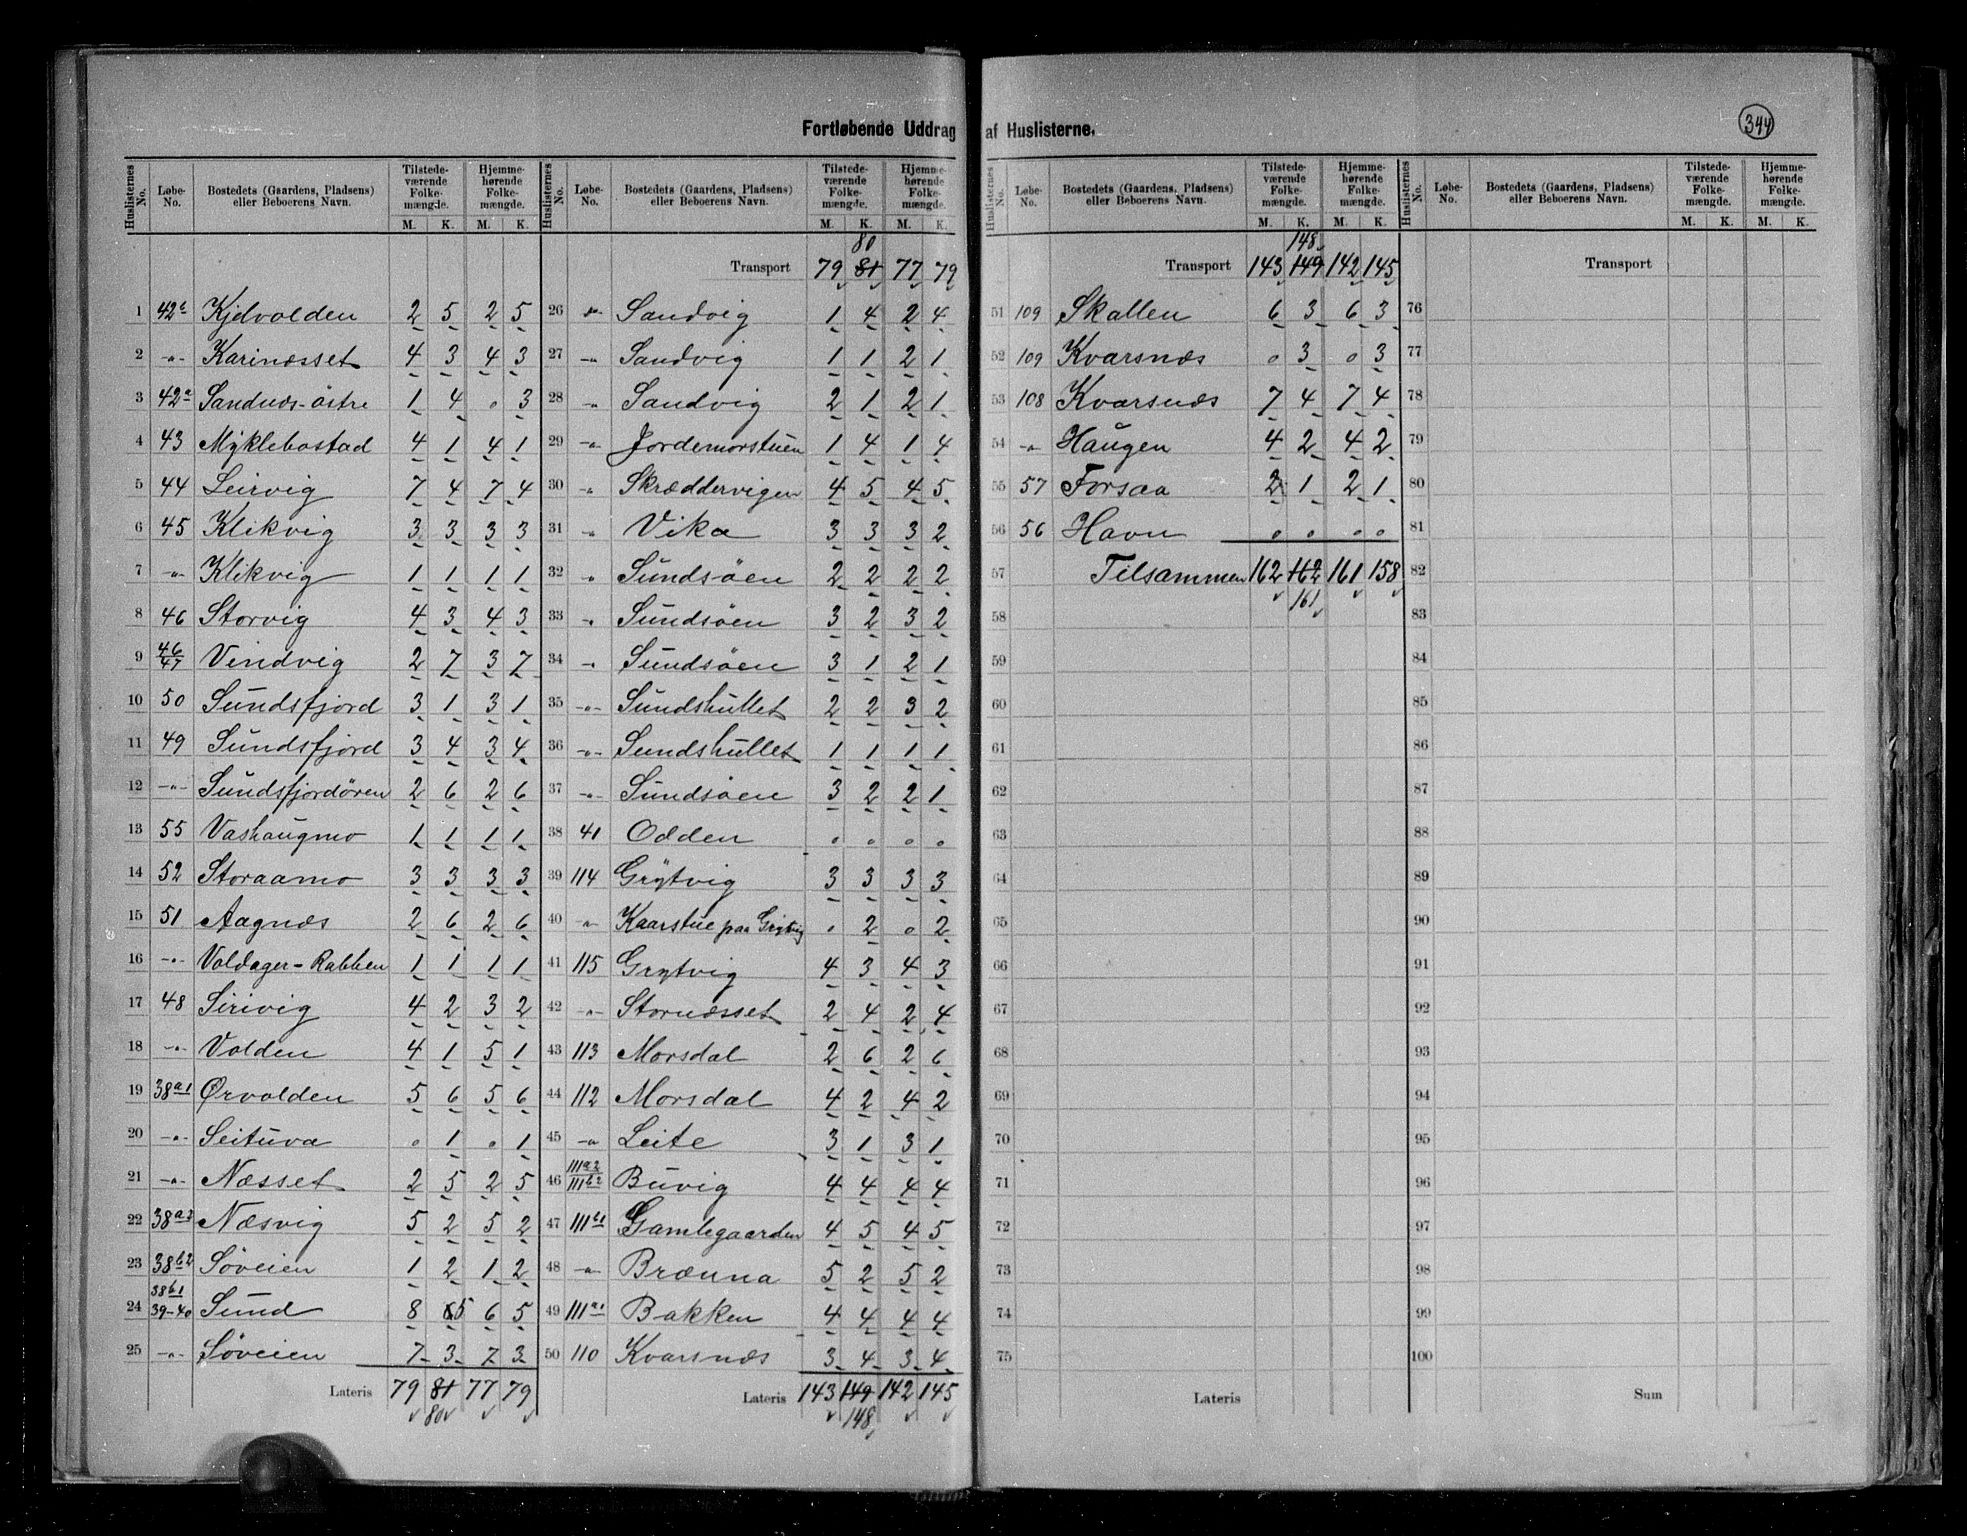 Fortløbende Uddrag af Huslisterne.
344
Huslisternes No. | Løbe-No. | Bostedets (Gaardens, Pladsens) eller Beboerens Navn. | Tilstede-værende Folke-mængde. M. K. | Hjemme-hørende Folke-mængde. M. K.
1 42b Kjelvolden 2 5 2 5
2 -"- Karinæsset 4 3 4 3
3 42a Sandnæs-östre 1 4 0 3
4 43 Myklebostad 4 1 4 1
5 44 Leirvig 7 4 7 4
6 45 Klikvig 3 3 3 3
7 -"- Klikvig 1 1 1 1
8 46 Storvig 4 3 4 3
9 46/47 Vindvig 2 7 3 7
10 50 Sundsfjord 3 1 3 1
11 49 Sundsfjord 3 4 3 4
12 -"- Sundsfjordøren 2 6 2 6
13 55 Vashaugmo 1 1 1 1
14 52 Storaamo 3 3 3 3
15 51 Aagnæs 2 6 2 6
16 -"- Voldager-Rabben 1 1 1 1
17 48 Sirivig 4 2 3 2
18 -"- Volden 4 1 5 1
19 38a1 Ørvolden 5 6 5 6
20 -"- Seituva 0 1 0 1
21 -"- Næsset 2 5 2 5
22 38a3 Næsvig 5 2 5 2
23 38b2 Søveien 1 2 1 2
24 38b1 39-40 Sund 8 5 6 5
25 -"- Søveien 7 3 7 3
Lateris 79 81 77 79
80
Huslisternes No. | Løbe-No. | Bostedets (Gaardens, Pladsens) eller Beboerens Navn. | Tilstede-værende Folke-mængde. M. K. | Hjemme-hørende Folke-mængde. M. K.
80
Transport 79 81 77 79
26 -"- Sandvig 1 4 2 4
27 -"- Sandvig 1 1 2 1
28 -"- Sandvig 2 1 2 1
29 -"- Jordemorstuen 1 4 1 4
30 -"- Skræddervigen 4 5 4 5
31 -"- Vika 3 3 3 2
32 " Sundsöen 2 2 2 2
33 -"- Sundsöen 3 2 3 2
34 -"- Sundsöen 3 1 2 1
35 -"- Sundshullet 2 2 3 2
36 -"- Sundshullet 1 1 1 1
37 -"- Sundsöen 3 2 2 1
38 41 Odden 0 0 0 0
39 114 Grytvig 3 3 3 3
40 -"- Kaarstue paa Grytvig 0 2 0 2
41 115 Grytvig 4 3 4 3
42 -"- Stornæsset 2 4 2 4
43 113 Morsdal 2 6 2 6
44 112 Morsdal 4 2 4 2
45 -"- Leite 3 1 3 1
46 111a2 111b2 Buvig 4 4 4 4
47 111b1 Gamlegaarden 4 5 4 5
48 -"- Brænna 5 2 5 2
49 111a1 Bakken 4 4 4 4
50 110 Kvarsnæs 3 4 3 4
Lateris 143 149 142 145
148
Huslisternes No. | Løbe-No. | Bostedets (Gaardens, Pladsens) eller Beboerens Navn. | Tilstede-værende Folke-mængde. M. K. | Hjemme-hørende Folke-mængde. M. K.
148
Transport 143 149 142 145
51 109 Skallen 6 3 6 3
52 109 Kvarsnæs 0 3 0 3
53 108 Kvarsnæs 7 4 7 4
54 -"- Haugen 4 2 4 2
55 57 Forsaa 2 1 2 1
56 56 Havn 0 0 0 0
57 Tilsammen 162 162 161 158
161
58
59
60
61
62
63
64
65
66
67
68
69
70
71
72
73
74
75
Lateris
Huslisternes No. | Løbe-No. | Bostedets (Gaardens, Pladsens) eller Beboerens Navn. | Tilstede-værende Folke-mængde. M. K. | Hjemme-hørende Folke-mængde. M. K.
Transport
76
77
78
79
80
81
82
83
84
85
86
87
88
89
90
91
92
93
94
95
96
97
98
99
100
Sum